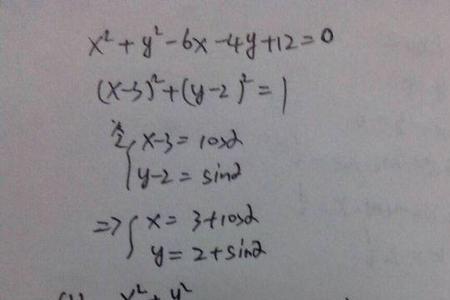 x²+y²-6x-4y+12=0
(x-3)²+(y-2)²=1
令{x-3=cosα
y-2=sinα
=>{x=3+cosα
y=2+sinα
x²+y²